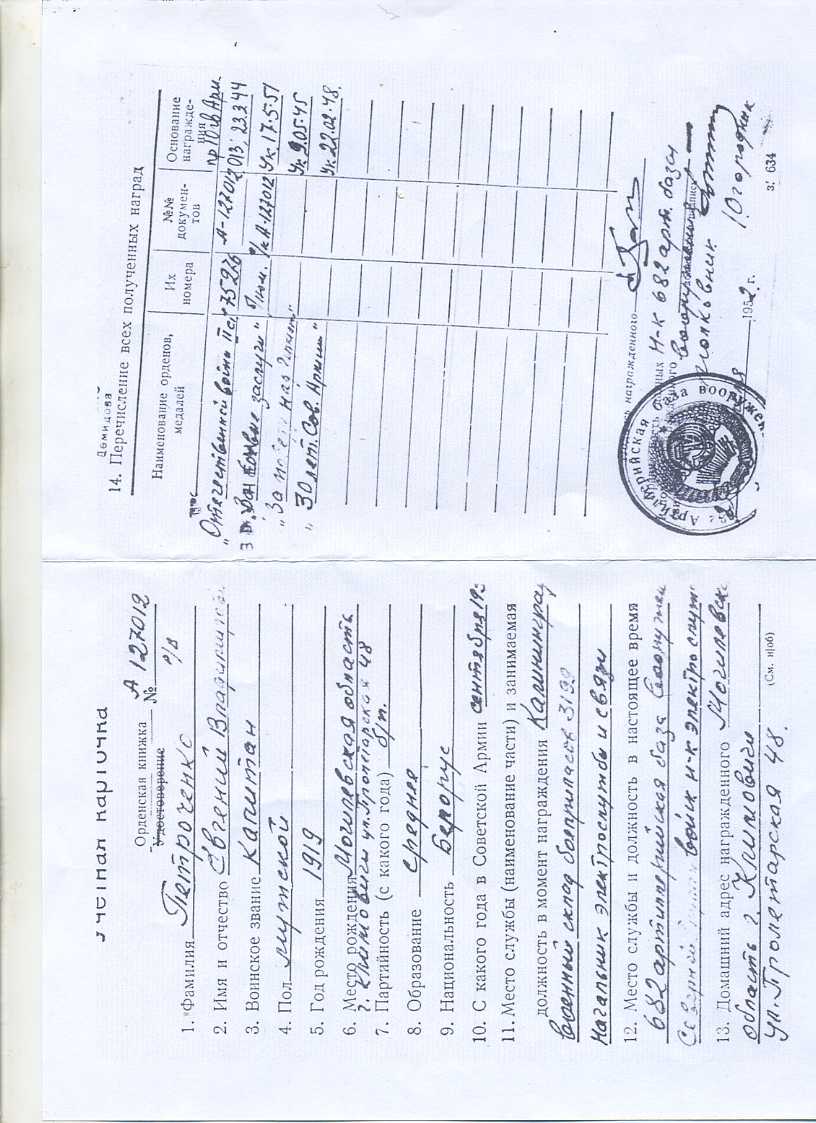 Учетная карточка
Орденская книжка А
Удостоверение № 127012
1. Фамилия Петроченко
2. Имя и отчество Евгений
3. Воинское звание Капитан
4. Пол мужской
5. Год рождения 1919
6. Место рождения Могилевская область
г. Климовичи ул. Пролетарская 48
7. Партийность (с какого года) б/п.
8. Образование среднее
9. Национальность Белорус
10. С какого года в Советской Армии сентября
11. Место службы (наименование части) и занимаемая
должность в момент награждения Калининград
военный склад боеприпасов
Начальник электрослужбы и связи
12. Место службы и должность в настоящее время
682 артиллерийская база
войск н-к электрослуж
13. Домашний адрес награжденного Могилевск
область г. Климовичи
ул. Пролетарская 48.
(См. н/об)
Демидова
14. Перечисление всех полученных наград
Наименование орденов, медалей
Их номера
№№ документов
Основание награждения
"Отечественной войны А-127012
"За боевые заслуги" 23.3.44
"За А-127012 Ук. 17.5.51
Ук. 9.05.45
"30 лет Сов. Армии" Ук. 22.02.48.
награжденного
Н-к 682 арт. базы
полковник Огородник
1952 г.
Артиллерийская база вооружен
з. 634